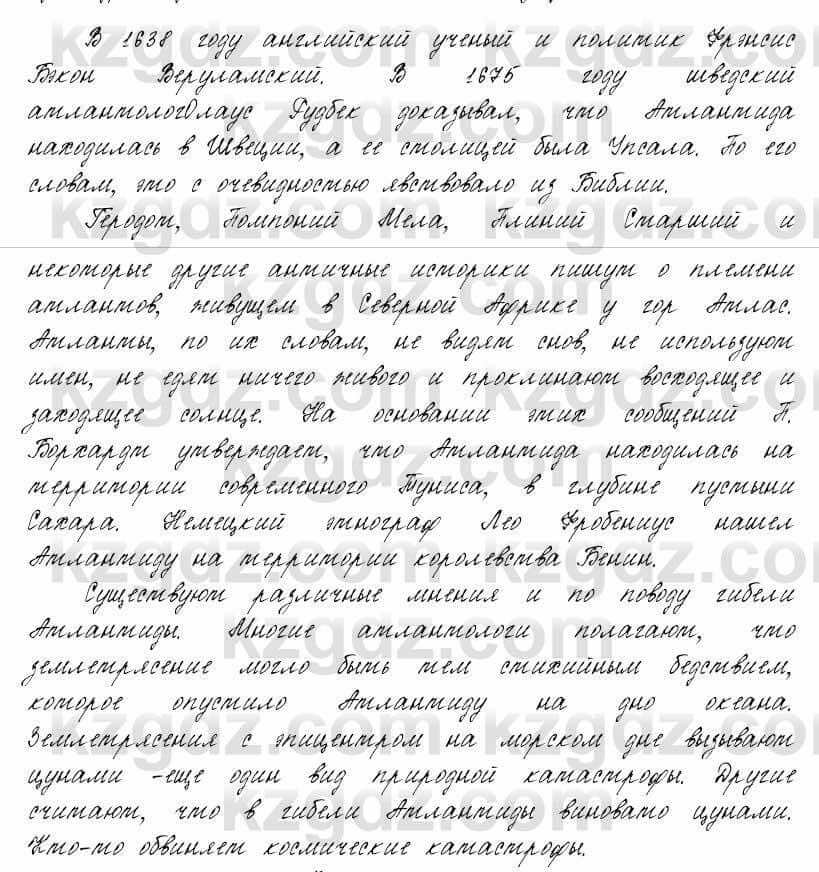 В 1638 году английский ученый и политик Фрэнсис
Бэкон Веруламский. В 1675 году шведский
атлантологОлаус Рудбек доказывал, что Атлантида
находилась в Швеции, а ее столицей была Упсала. По его
словам, это с очевидностью явствовало из Библии.
Геродот, Помпоний Мела, Плиний Старший и
некоторые другие античные историки пишут о племени
атлантов, живущем в Северной Африке у гор Атлас.
Атланты, по их словам, не видят снов, не используют
имен, не едят ничего живого и проклинают восходящее и
заходящее солнце. На основании этих сообщений П.
Борхардт утверждает, что Атлантида находилась на
территории современного Туниса, в глубине пустыни
Сахара. Немецкий этнограф Лео Фробениус нашел
Атлантиду на территории королевства Бенин.
Существуют различные мнения и по поводу гибели
Атлантиды. Многие атлантологи полагают, что
землетрясение могло быть тем стихийным бедствием,
которое опустило Атлантиду на дно океана.
Землетрясения с эпицентром на морском дне вызывают
цунами -еще один вид природной катастрофы. Другие
считают, что в гибели Атлантиды виновато цунами.
Кто-то обвиняет космические катастрофы.
kzgdz.com